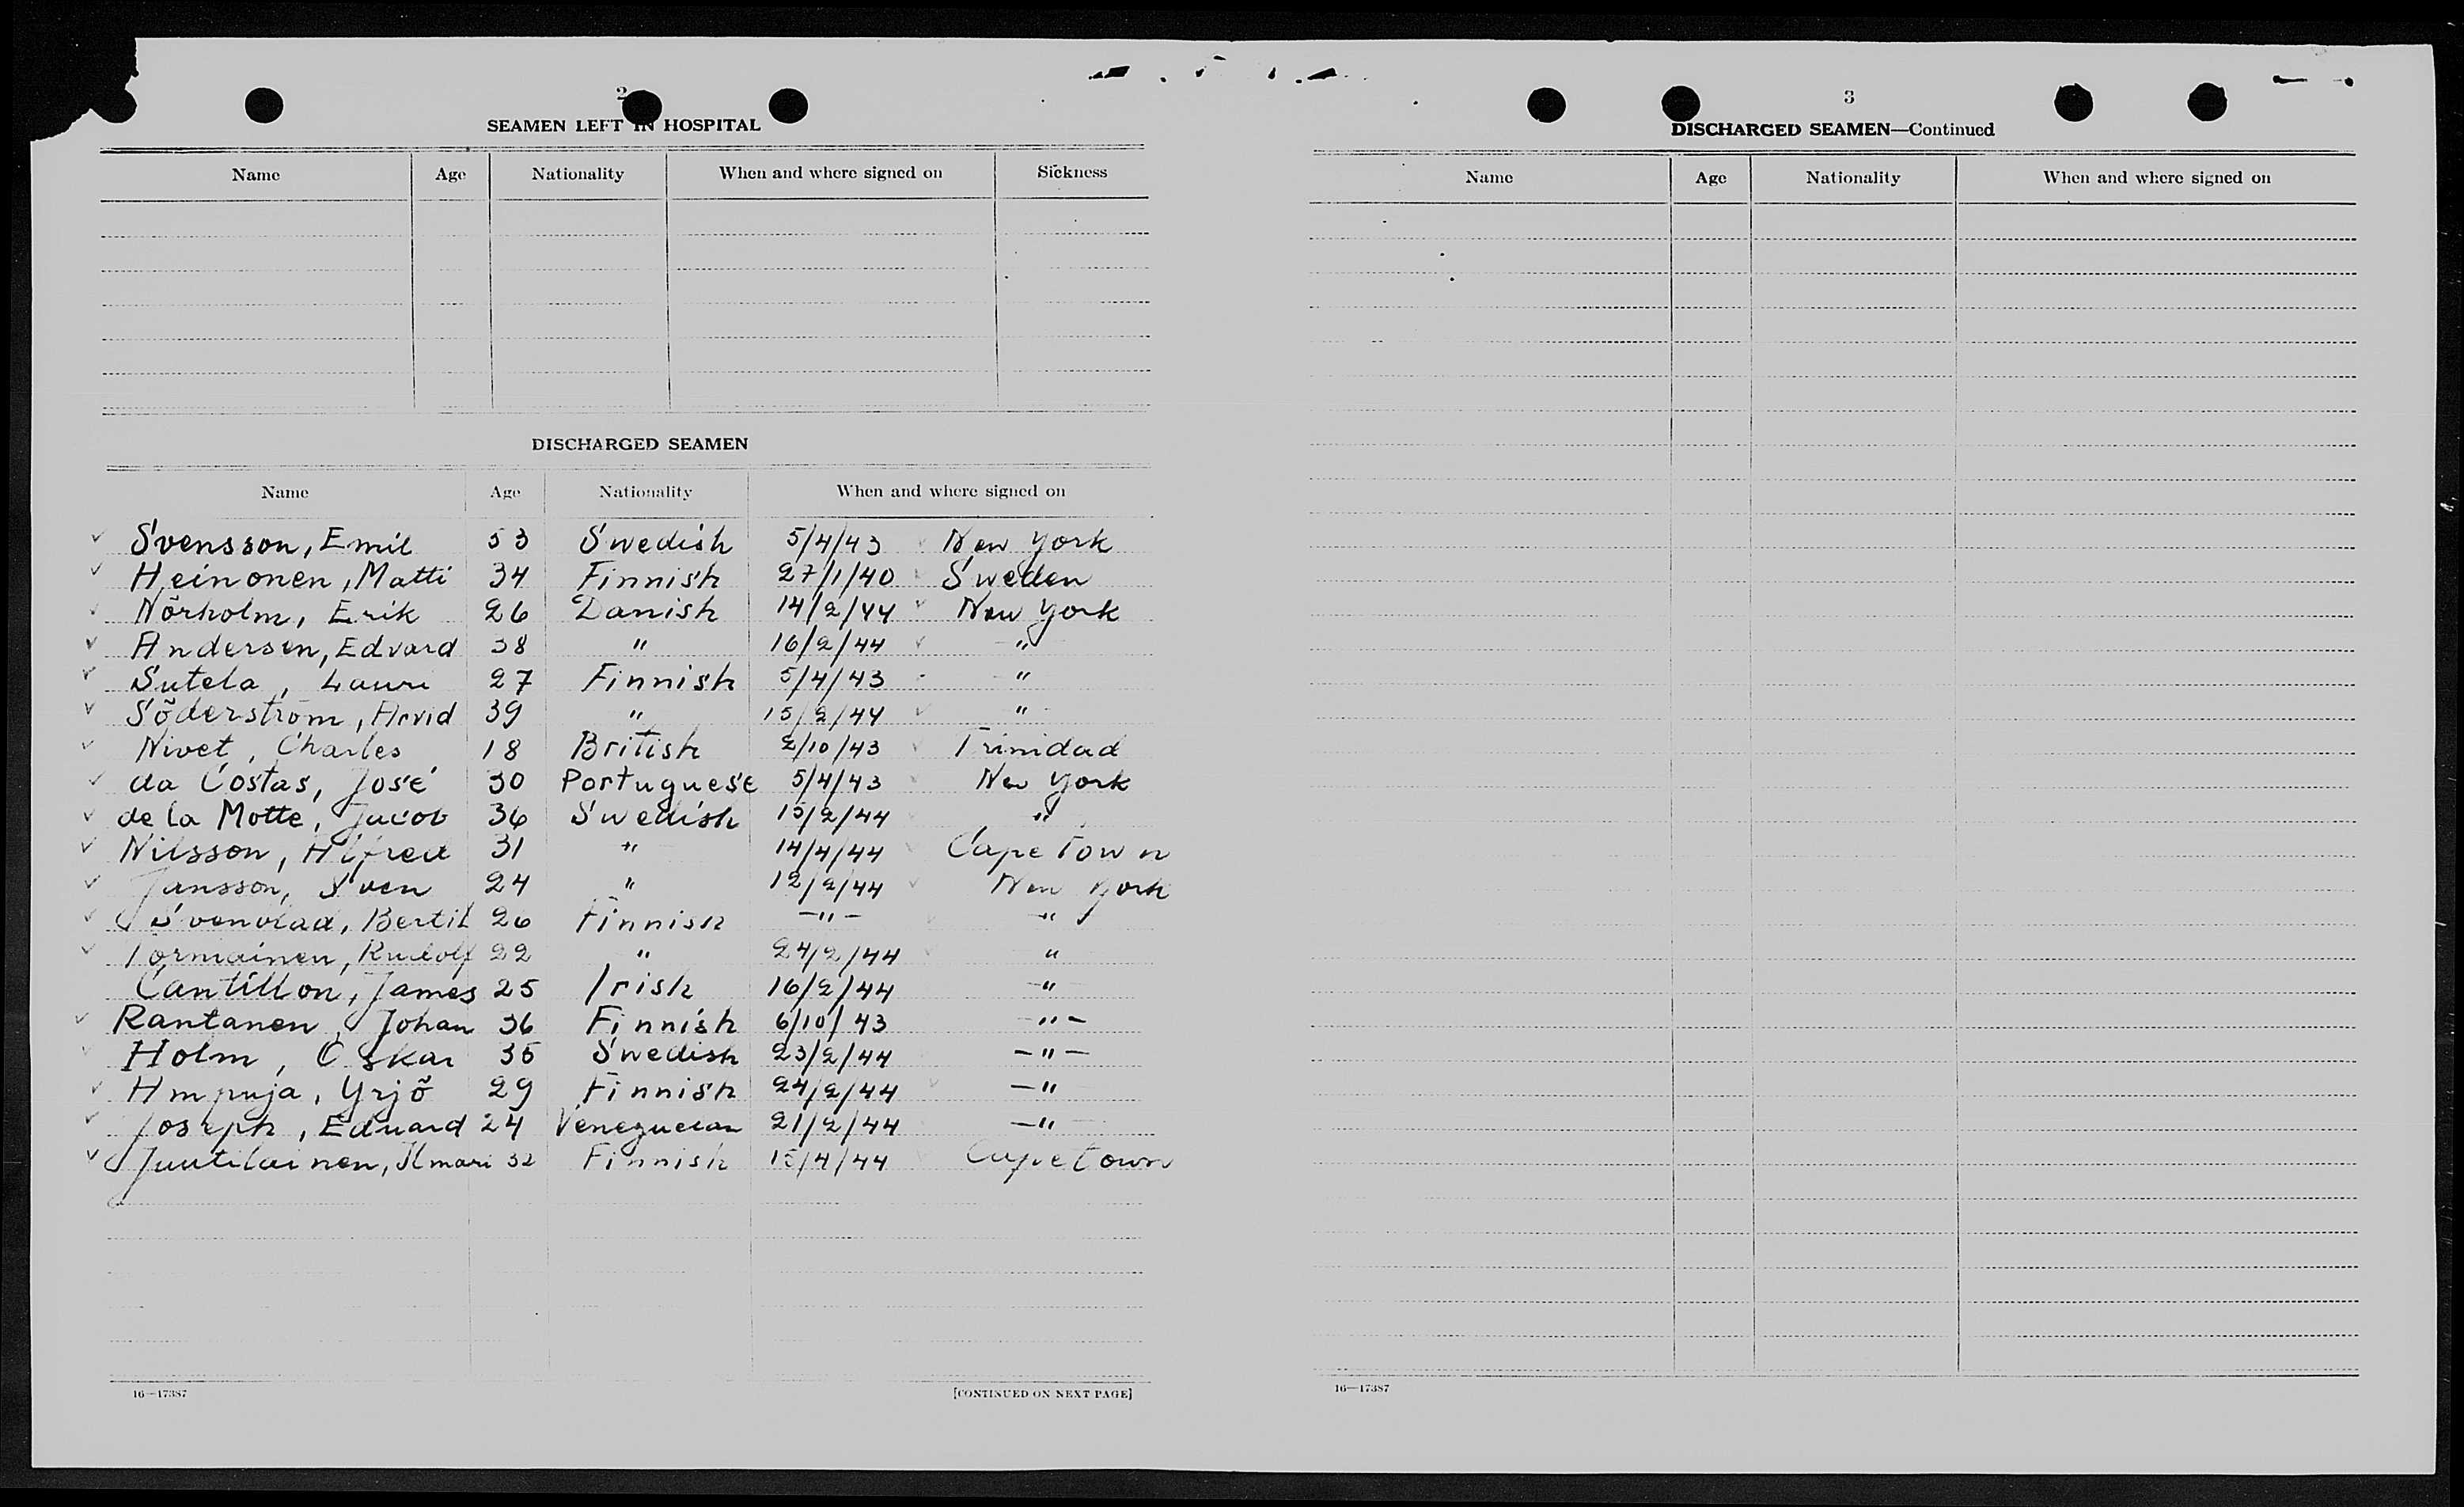 2
SEAMEN LEFT IN HOSPITAL
Name Age Nationality When and where signed on Sickness
DISCHARGED SEAMEN
Name Age Nationality When and where signed on
✓ Svensson, Emil 53 Swedish 5/4/43 New York
✓ Heinonen, Matti 34 Finnish 27/1/40 Sweden
✓ Nõrholm, Erik 26 Danish 14/2/44 New York
✓ Andersen, Edvard 38 " 16/2/44 "
✓ Sutela, Lauri 27 Finnish 5/4/43 "
✓ Sõderstrom, Arvid 39 " 15/2/44 "
✓ Nivet, Charles 18 British 2/10/43 Trinidad
✓ da Costas, José 30 Portuguese 5/4/43 New York
✓ de la Motte, Jacob 36 Swedish 15/2/44 "
✓ Nilsson, Alfred 31 " 14/4/44 Cape Town
✓ Jansson, Sven 24 " 12/2/44 New York
✓ Svenblad, Bertil 26 Finnish —"— "
✓ Tormainen, Rudolf 22 " 24/2/44 "
Cantillon, James 25 Irish 16/2/44 —"
✓ Rantanen, Johan 36 Finnish 6/10/43 —"—
✓ Holm, Oskar 35 Swedish 23/2/44 —"—
✓ Yrjõ 29 Finnish 24/2/44 —"
✓ Joseph, Eduard 24 Venezuelan 21/2/44 —"
✓ Juutilainen, Ilmari 32 Finnish 15/4/44 Capetown
16—17387 [CONTINUED ON NEXT PAGE]
3
DISCHARGED SEAMEN—Continued
Name Age Nationality When and where signed on
16—17387